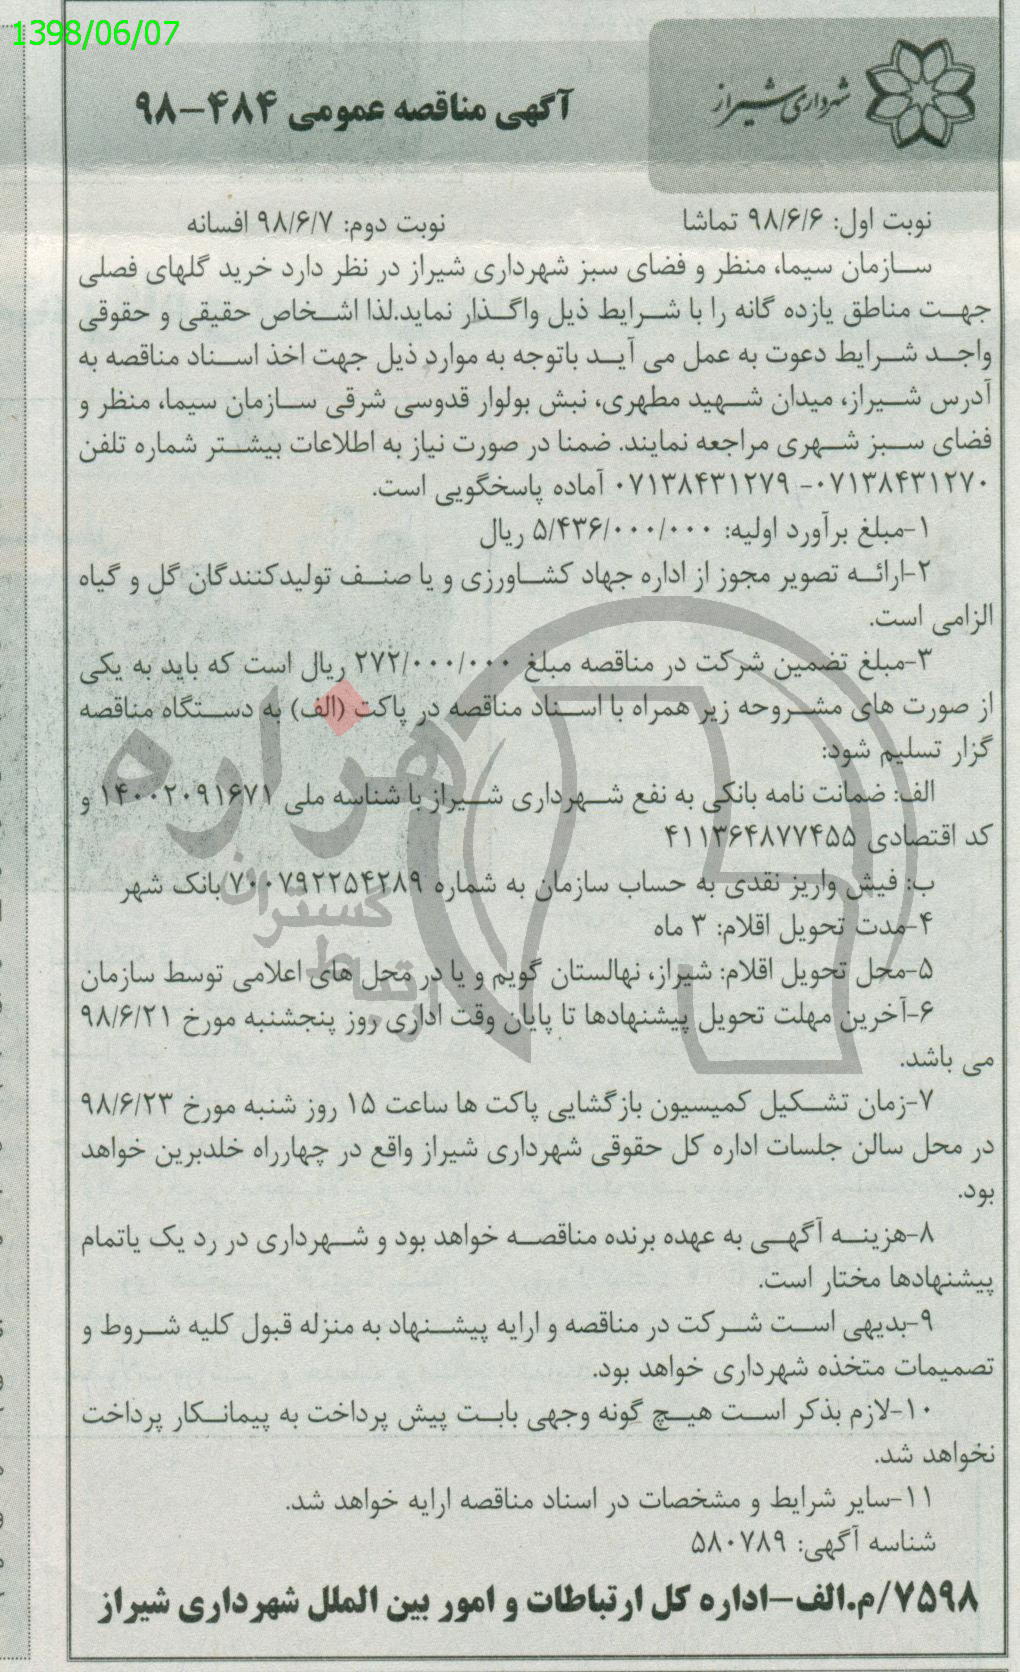 1398/06/07
شهرداری شیراز
آگهی مناقصه عمومی ۴۸۴-۹۸
نوبت اول: ۹۸/۶/۶ تماشا
نوبت دوم: ۹۸/۶/۷ افسانه
سازمان سیما، منظر و فضای سبز شهرداری شیراز در نظر دارد خرید گلهای فصلی
جهت مناطق یازده گانه را با شرایط ذیل واگذار نماید.لذا اشخاص حقیقی و حقوقی
واجد شرایط دعوت به عمل می آید باتوجه به موارد ذیل جهت اخذ اسناد مناقصه به
آدرس شیراز، میدان شهید مطهری، نبش بولوار قدوسی شرقی سازمان سیما، منظر و
فضای سبز شهری مراجعه نمایند. ضمنا در صورت نیاز به اطلاعات بیشتر شماره تلفن
۰۷۱۳۸۴۳۱۲۷۰- ۰۷۱۳۸۴۳۱۲۷۹ آماده پاسخگویی است.
۱-مبلغ برآورد اولیه: ۵/۴۳۶/۰۰۰/۰۰۰ ریال
۲-ارائه تصویر مجوز از اداره جهاد کشاورزی و یا صنف تولیدکنندگان گل و گیاه
الزامی است.
۳-مبلغ تضمین شرکت در مناقصه مبلغ ۲۷۲/۰۰۰/۰۰۰ ریال است که باید به یکی
از صورت های مشروحه زیر همراه با اسناد مناقصه در پاکت (الف) به دستگاه مناقصه
گزار تسلیم شود:
الف: ضمانت نامه بانکی به نفع شهرداری شیراز با شناسه ملی ۱۴۰۰۲۰۹۱۶۷۱ و
کد اقتصادی ۴۱۱۳۶۴۸۷۷۴۵۵
ب: فیش واریز نقدی به حساب سازمان به شماره ۷۰۰۷۹۲۲۵۴۲۸۹ بانک شهر
۴-مدت تحویل اقلام: ۳ ماه
۵-محل تحویل اقلام: شیراز، نهالستان گویم و یا در محل های اعلامی توسط سازمان
۶-آخرین مهلت تحویل پیشنهادها تا پایان وقت اداری روز پنجشنبه مورخ ۹۸/۶/۲۱
می باشد.
۷-زمان تشکیل کمیسیون بازگشایی پاکت ها ساعت ۱۵ روز شنبه مورخ ۹۸/۶/۲۳
در محل سالن جلسات اداره کل حقوقی شهرداری شیراز واقع در چهارراه خلدبرین خواهد
بود.
۸-هزینه آگهی به عهده برنده مناقصه خواهد بود و شهرداری در رد یک یاتمام
پیشنهادها مختار است.
۹-بدیهی است شرکت در مناقصه و ارایه پیشنهاد به منزله قبول کلیه شروط و
تصمیمات متخذه شهرداری خواهد بود.
۱۰-لازم بذکر است هیچ گونه وجهی بابت پیش پرداخت به پیمانکار پرداخت
نخواهد شد.
۱۱-سایر شرایط و مشخصات در اسناد مناقصه ارایه خواهد شد.
شناسه آگهی: ۵۸۰۷۸۹
۷۵۹۸/م.الف-اداره کل ارتباطات و امور بین الملل شهرداری شیراز
هزاره
گستران